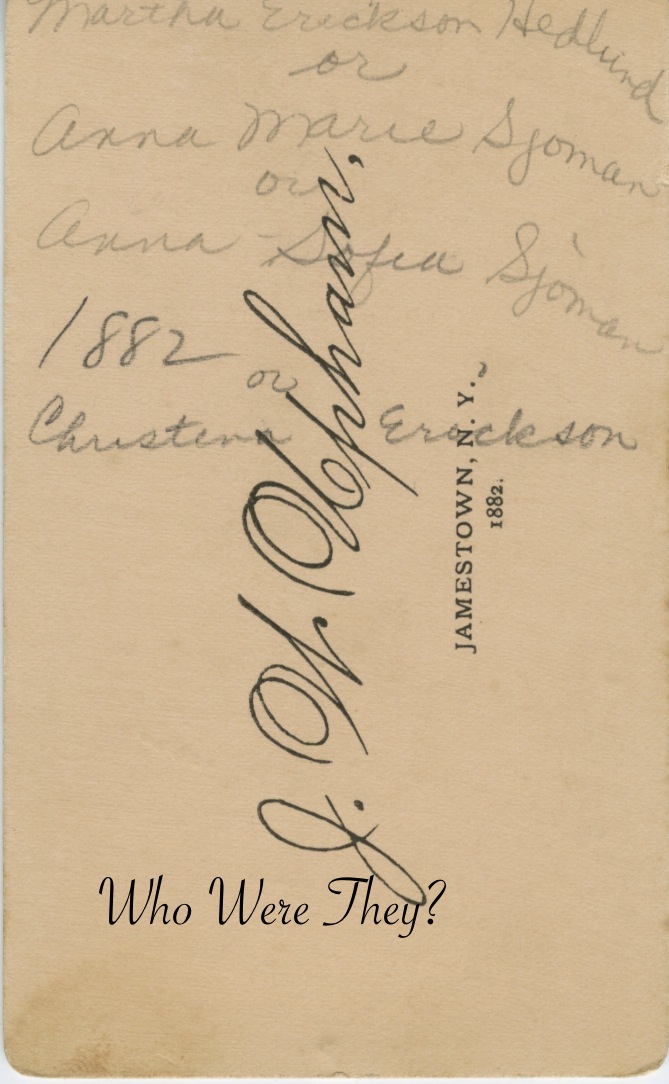 Martha Erickson Hedlund
or
Anna Marie Sjoman
or
Anna Sofia Sjoman
1882
or
Christena Erickson
J. W. Upham,
JAMESTOWN, N. Y.,
1882.
Who Were They?